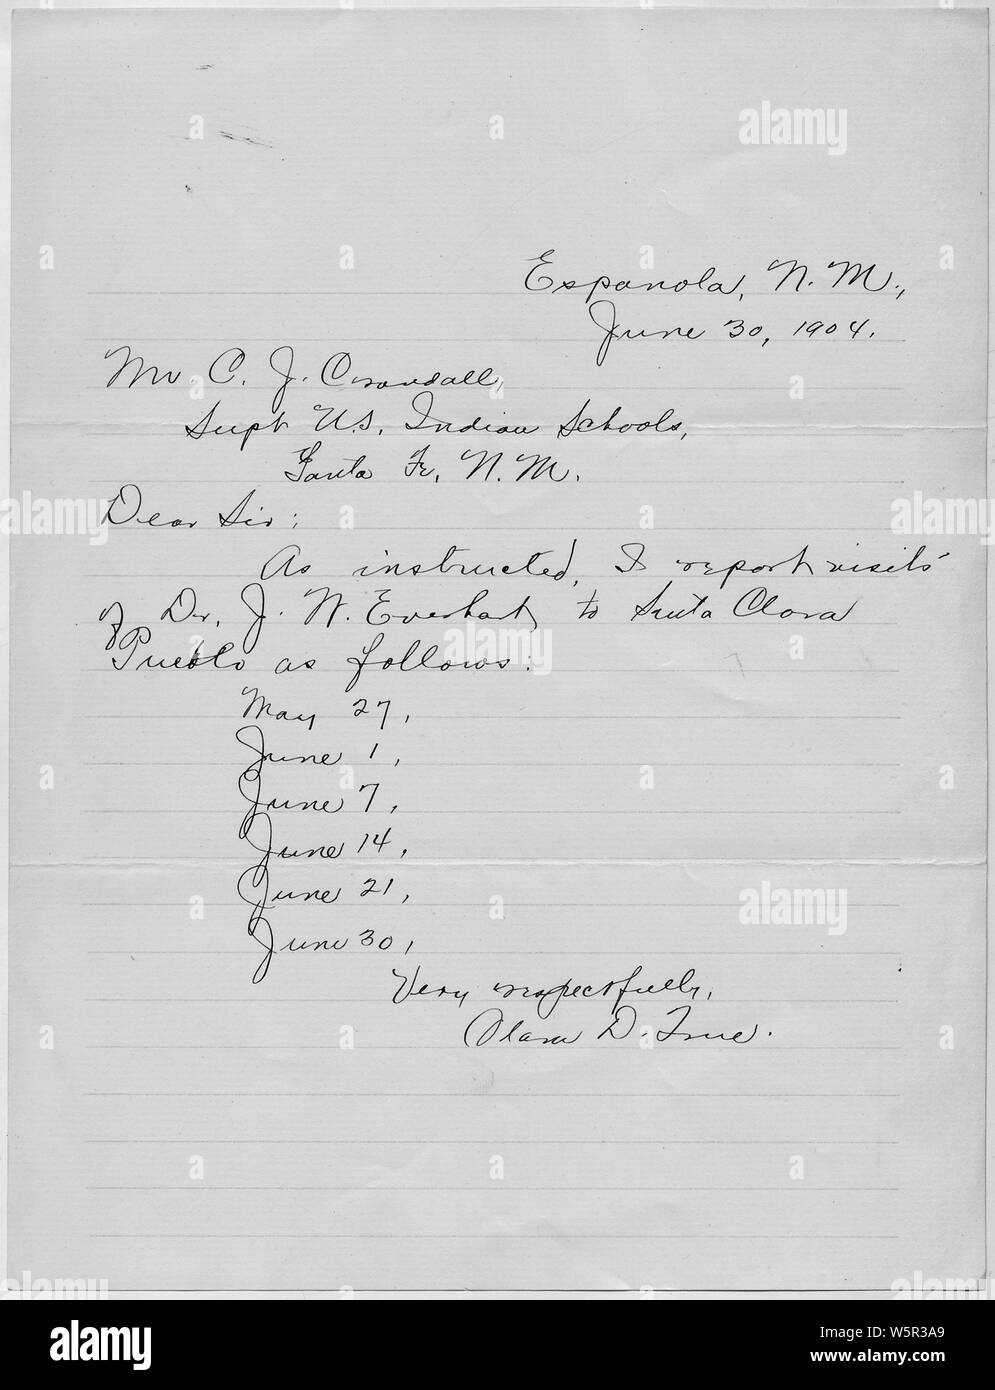 Espanola, N. M.,
June 30, 1904.
Mr. C. J. Crandall,
Supt. U.S. Indian Schools,
Santa Fe, N. M.
Dear Sir:
As instructed, I report visits
of Dr. J. N. Everhart to Santa Clara
Pueblo as follows:
May 27,
June 1,
June 7,
June 14,
June 21,
June 30,
Very respectfully,
Clara D. True.
a alamy
alamy
Image ID: W5R3A9
www.alamy.com